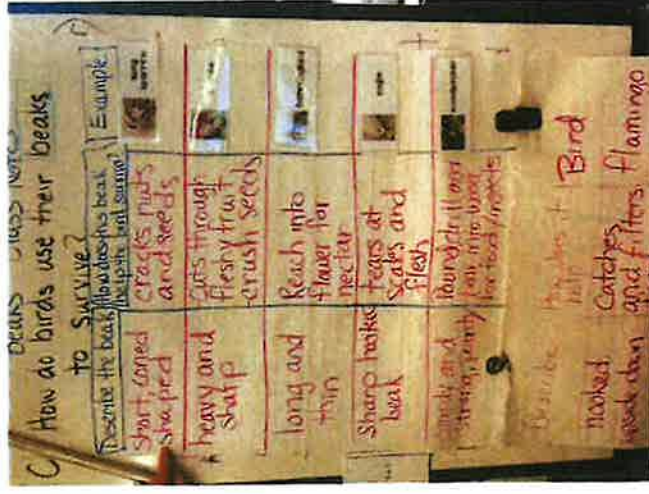 Beaks Class Notes
How do birds use their beaks
to survive?
Describe the beak
How does this beak
help the bird survive?
Example
short, coned
shaped
cracks nuts
and seeds
song
sparrow
heavy and
sharp
Cuts through
fleshy fruit
crush seeds
long and
thin
Reach into
flower for
nectar
Sharp hooked
beak
tears at
scales and
flesh
eagle
strong,
Pound, drill and
into wood
for food/insects
woodpecker
Describe
How does it
help
Bird
hooked,
down
Catches
and filters
flamingo